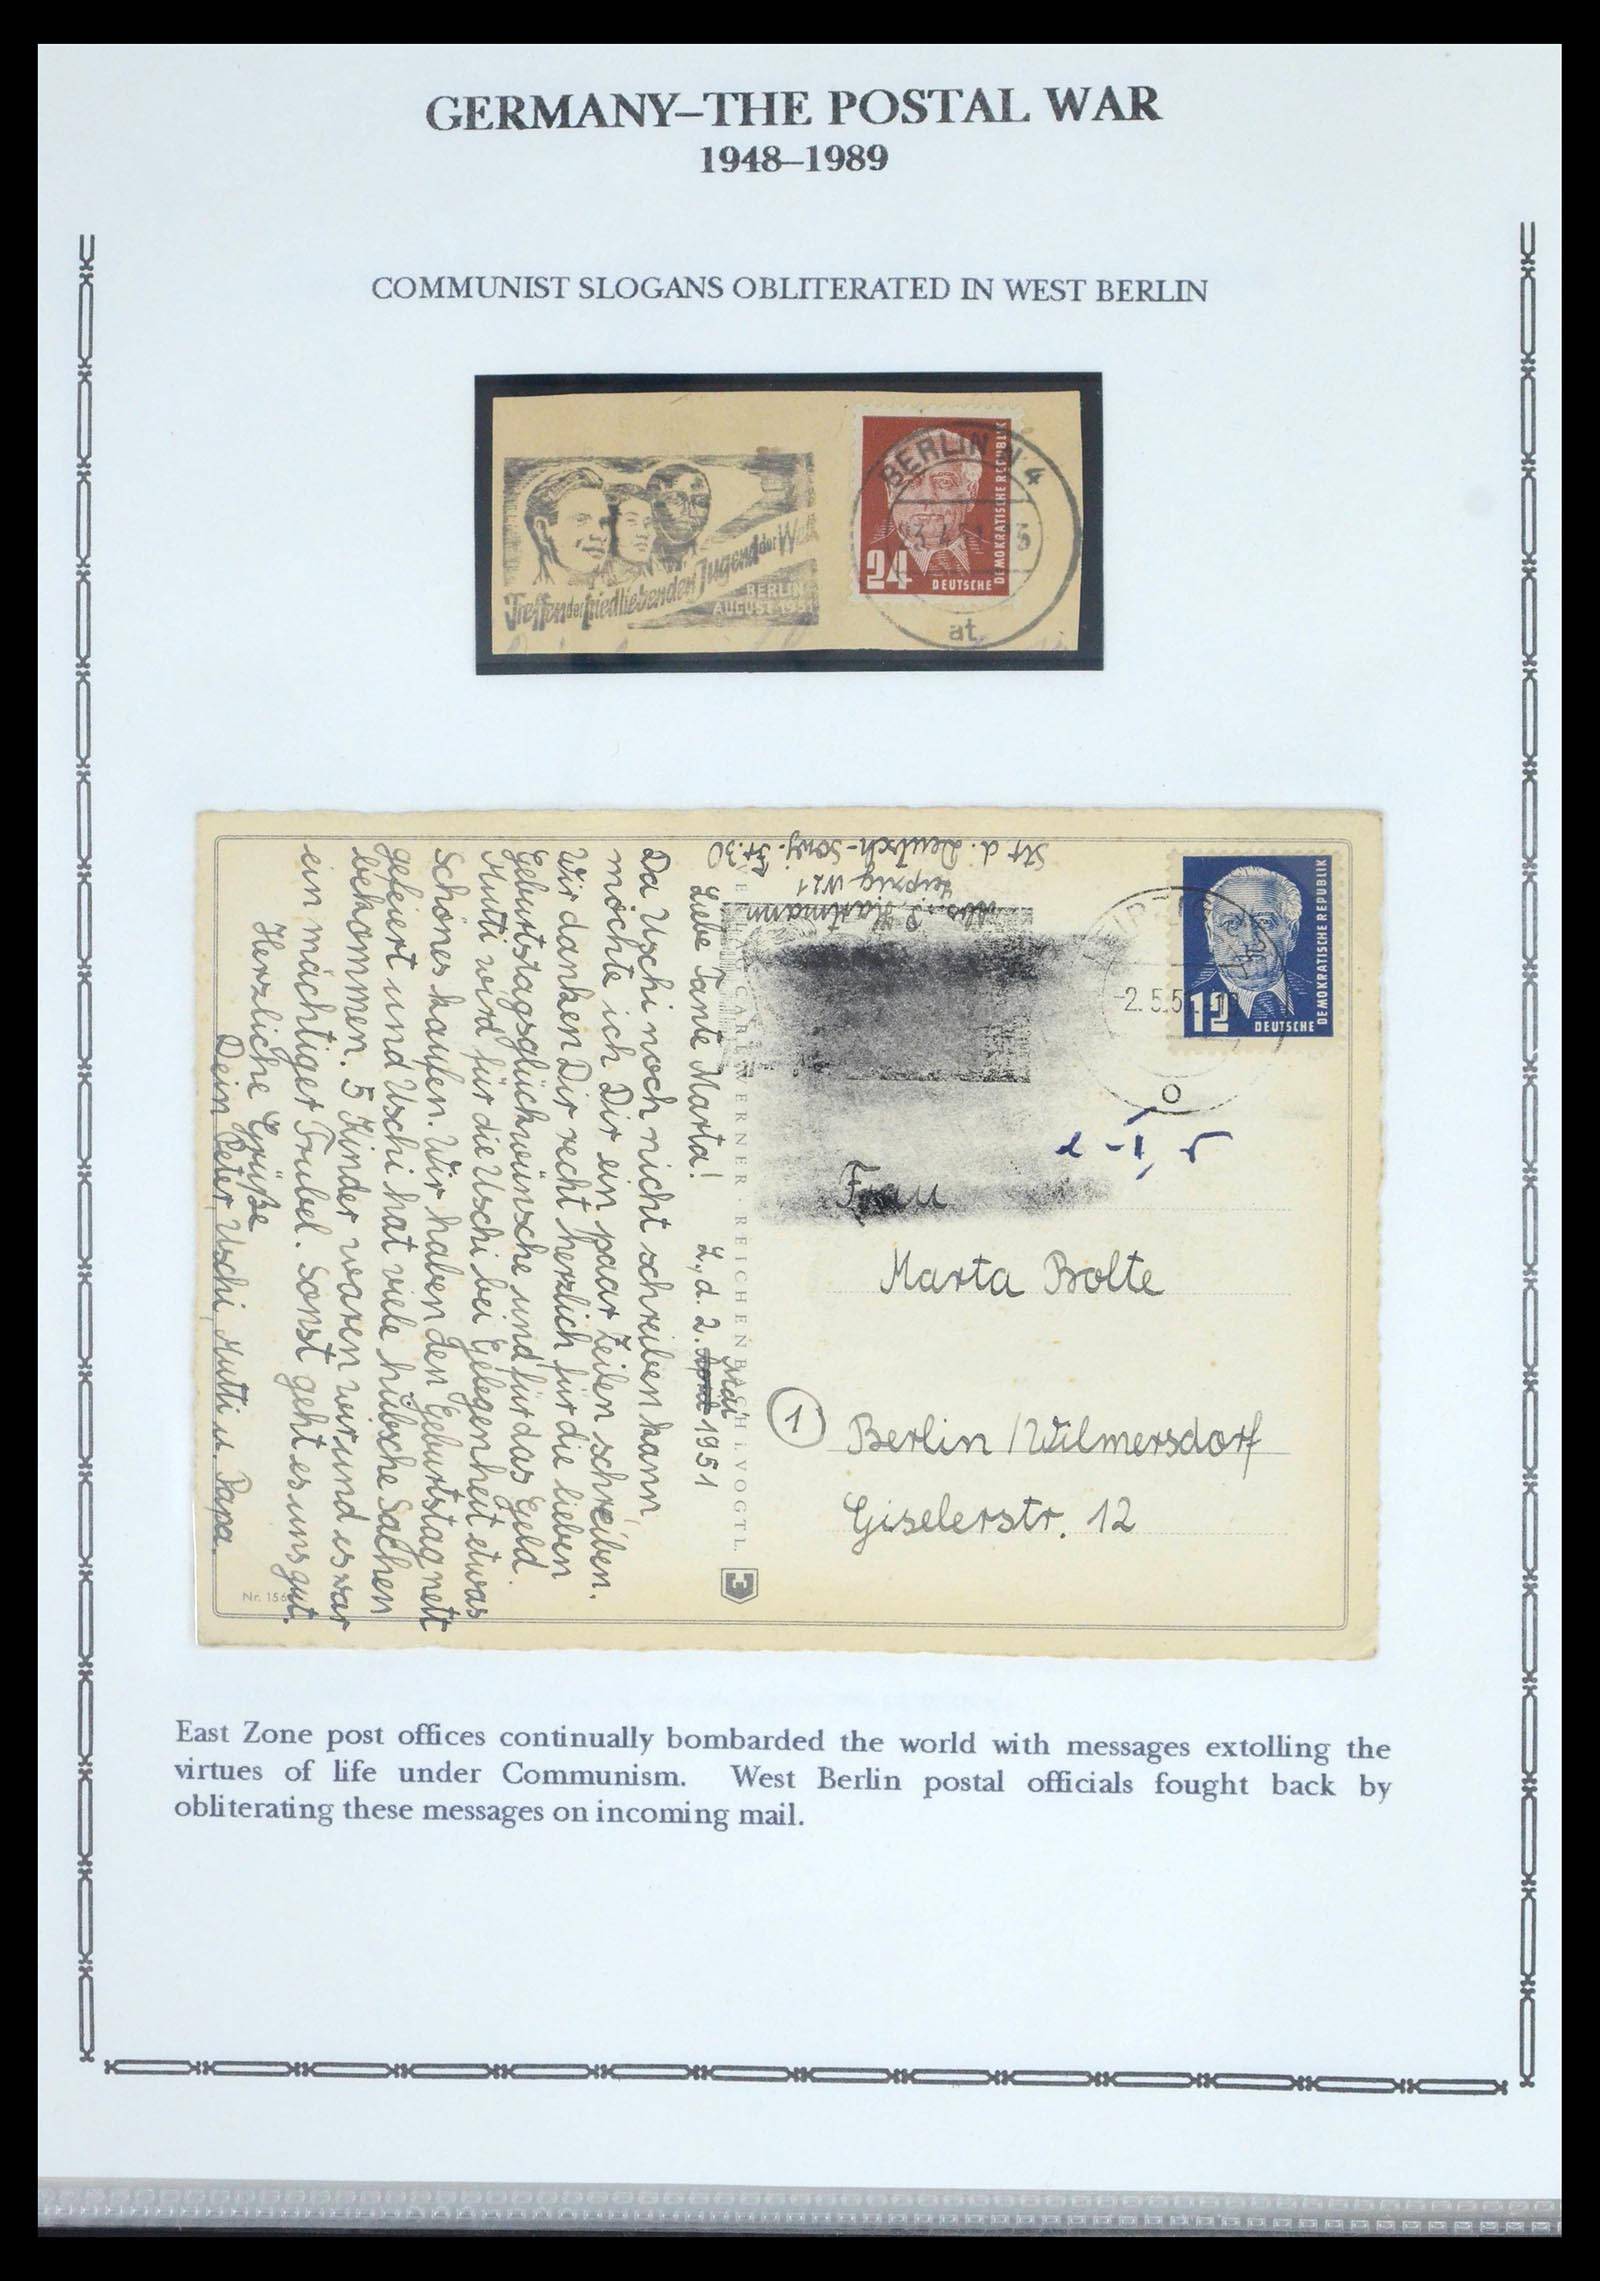 GERMANY–THE POSTAL WAR
1948–1989
COMMUNIST SLOGANS OBLITERATED IN WEST BERLIN
Treffen der friedliebenden Jugend der Welt
BERLIN
AUGUST 1951
BERLIN N 4
at
24
DEUTSCHE
DEMOKRATISCHE REPUBLIK
Hartmann
Leipzig W21
Str d. Deutsch-Sowj. Fr. 30
Liebe Tante Marta! L., d. 2. Mai 1951
Da Uschi noch nicht schreiben kann,
möchte ich Dir ein paar Zeilen schreiben.
Wir danken Dir recht herzlich für die lieben
Geburtstagsglückwünsche und für das Geld.
Mutti wird für die Uschi bei Gelegenheit etwas
Schönes kaufen. Wir haben den Geburtstag nett
gefeiert und Uschi hat viele hübsche Sachen
bekommen. 5 Kinder waren wir und es war
ein mächtiger Trubel. Sonst geht es uns gut.
Herzliche Grüße
Dein Peter, Uschi, Mutti u. Papa.
Nr. 156
VERLAG CARL WERNER · REICHENBACH i. VOGTL.
-2.5.5
o
12
DEUTSCHE
DEMOKRATISCHE REPUBLIK
Frau
Marta Bolte
1
Berlin / Wilmersdorf
Giselerstr. 12
East Zone post offices continually bombarded the world with messages extolling the
virtues of life under Communism. West Berlin postal officials fought back by
obliterating these messages on incoming mail.